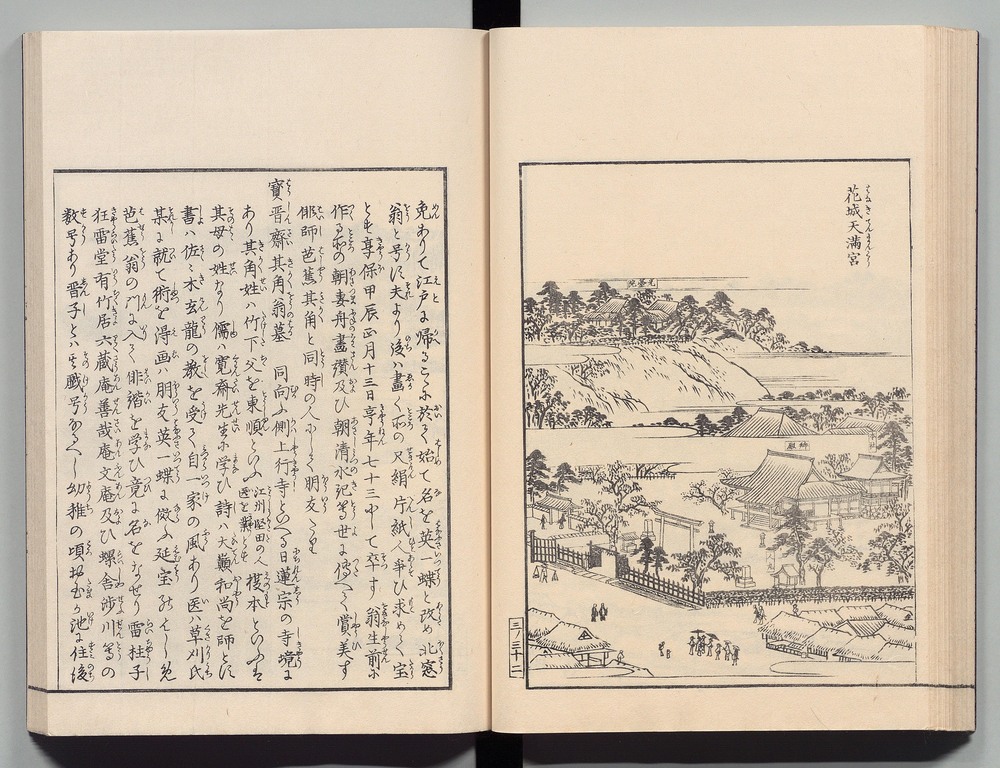 花城天満宮
はなき てんまんぐう
元墨沱
師殿
三ノ三十二
免ありて江戸に帰るこゝに於て始て名を英一蝶と改め北窓
翁と号す夫より後ハ畵く所の尺絹片紙人争ひ求めて宝
とも享保甲辰正月十三日享年七十三にして卒す翁生前に
作る所の朝妻舟畵讃及ひ朝清水記等世に傳へて賞美す
俳師芭蕉其角と同時の人にして朋友たり
寶晋齋其角翁墓 同向ふ側上行寺といへる日蓮宗の寺境に
あり其角姓ハ竹下父を東順といふ江州堅田の人医を業とす榎本といふは
其母の姓なり儒ハ寛齋先生に学ひ詩ハ大巓和尚を師とし
書ハ佐々木玄龍の教を受て自一家の風あり医ハ草刈氏
某に就て術を得画ハ朋友英一蝶に倣ふ延宝のはしめ
芭蕉翁の門に入て俳諧を学ひ竟に名をなせり雷柱子
狂雷堂有竹居六蔵庵善哉庵文庵及ひ螺舎渉川等の
数号あり晋子とハ其戯号なるへし幼稚の頃於玉か池に住後